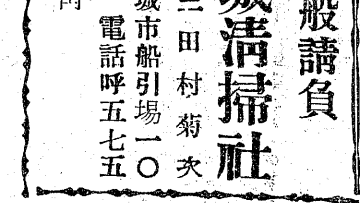 般請負
城淸掃社
田村菊次
城市船引場一〇
電話呼五七五